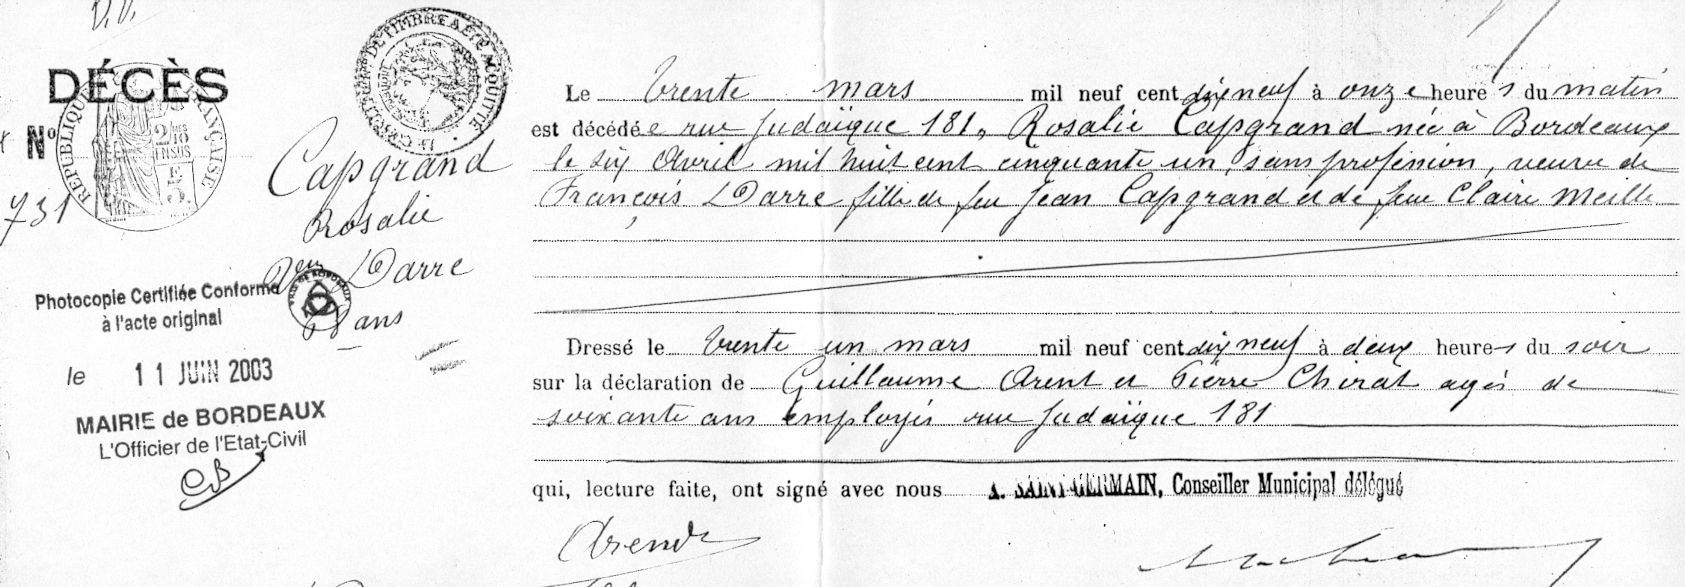 D.D.
DÉCÈS
RÉPUBLIQUE FRANÇAISE
2/10 EN SUS
Nº
731
Capgrand
Rosalie
Veuve Darre
68 ans
Photocopie Certifiée Conforme
à l'acte original
le 11 JUIN 2003
MAIRIE de BORDEAUX
L'Officier de l'Etat-Civil
CB
Le trente mars mil neuf cent dix neuf à onze heures du matin
est décédée rue Judaïque 181, Rosalie Capgrand née à Bordeaux
le six Avril mil huit cent cinquante un, sans profession, veuve de
François Darre fille de feu Jean Capgrand et de feue Claire Meille
Dressé le trente un mars mil neuf cent dix neuf à deux heures du soir
sur la déclaration de Guillaume Arent et Pierre Chirat agés de
soixante ans employés rue Judaïque 181
qui, lecture faite, ont signé avec nous A. SAINT-GERMAIN, Conseiller Municipal délégué